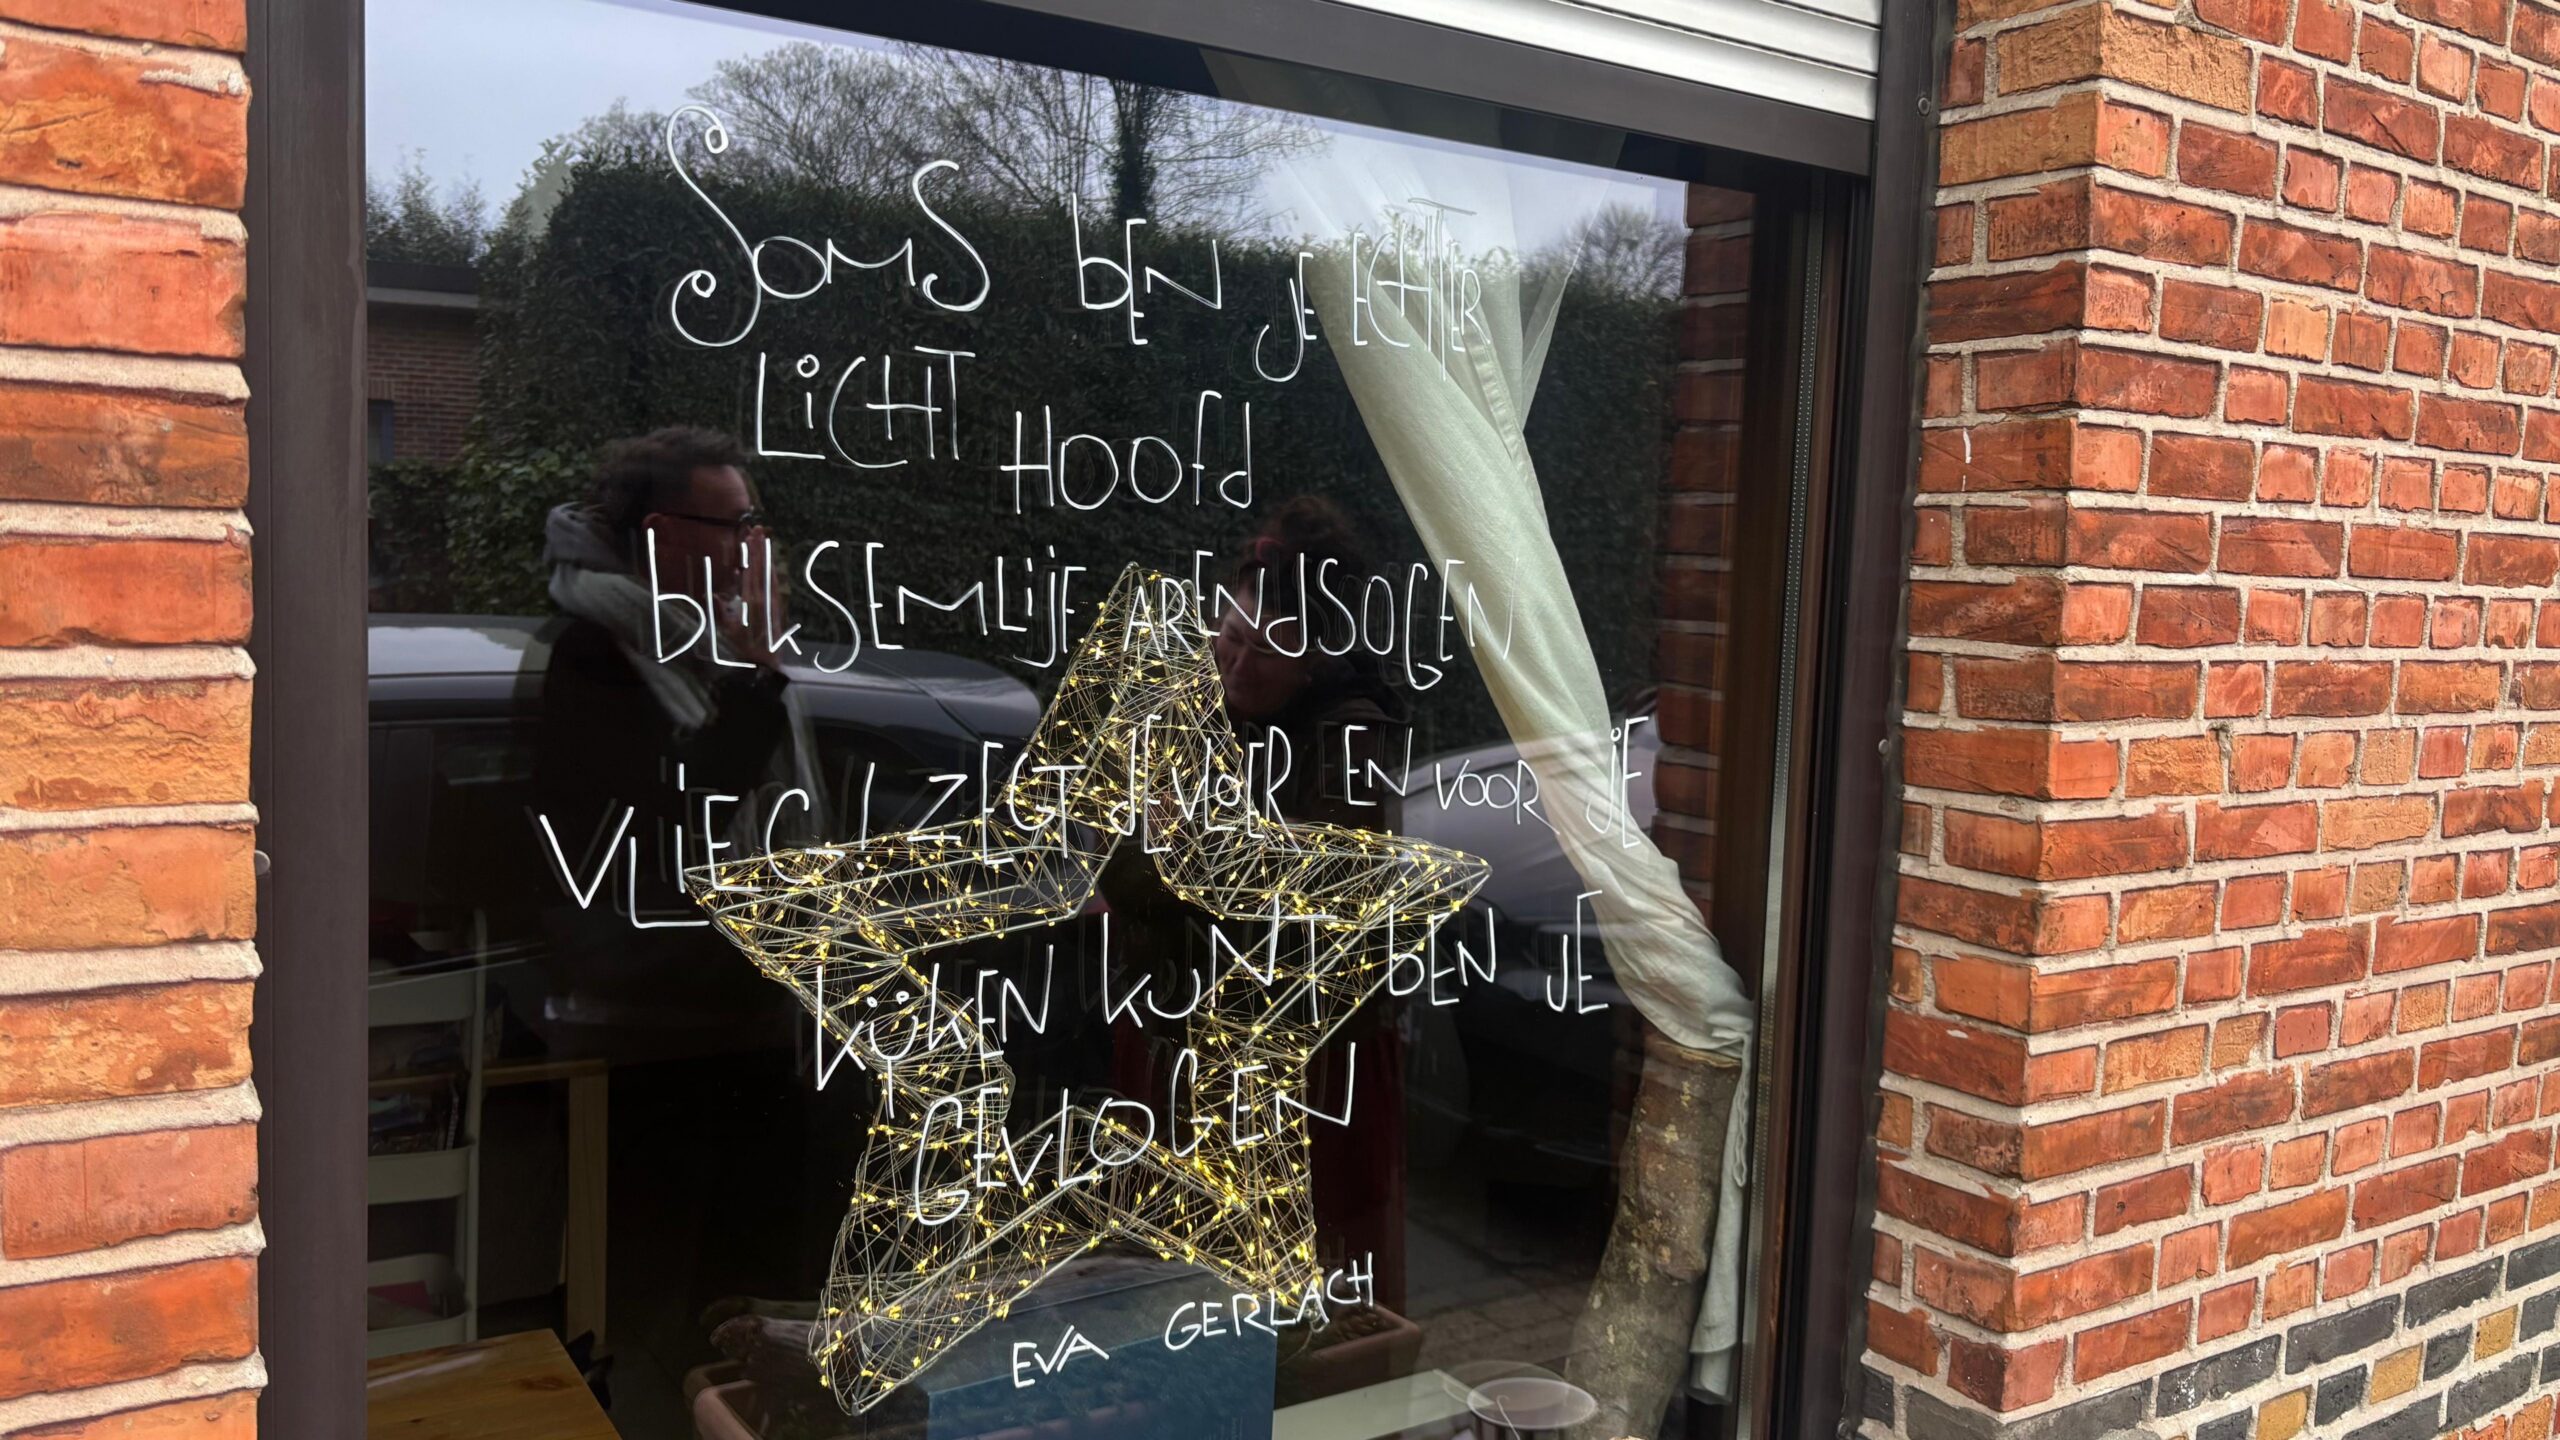 Soms ben je echter
licht hoofd
bliksemlije arendsogen
vlieg! zegt je vloer en voor je
kijken kunt ben je
gevlogen
Eva Gerlach